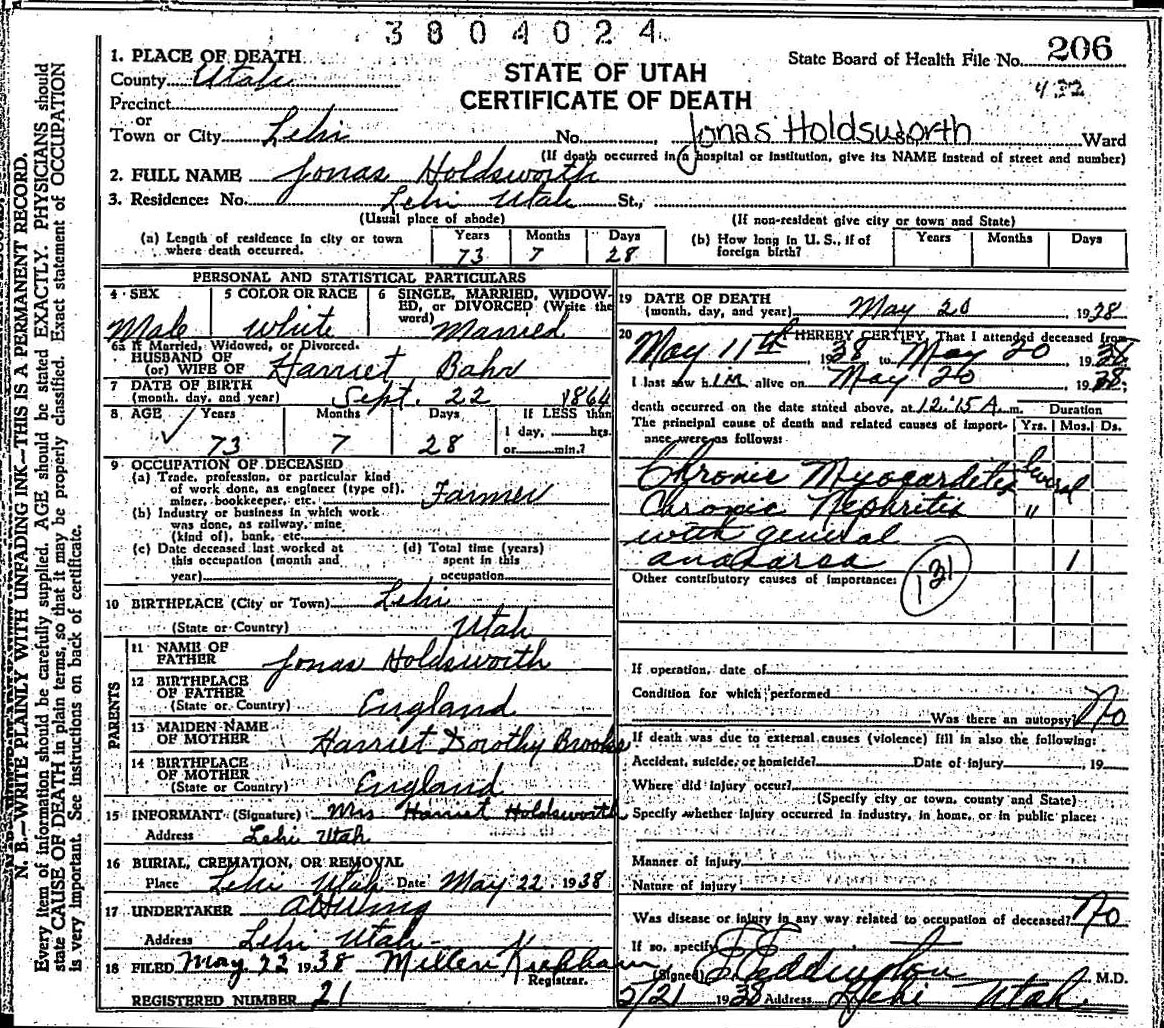 3804024
1. PLACE OF DEATH
State Board of Health File No. 206
County Utah
STATE OF UTAH
432
Precinct
CERTIFICATE OF DEATH
or
Town or City Lehi No. Jonas Holdsworth Ward
(If death occurred in a hospital or institution, give its NAME instead of street and number)
2. FULL NAME Jonas Holdsworth
3. Residence: No. Lehi Utah St.,
(Usual place of abode) (If non-resident give city or town and State)
(a) Length of residence in city or town where death occurred. Years 73 Months 7 Days 28
(b) How long in U. S., if of foreign birth? Years Months Days
PERSONAL AND STATISTICAL PARTICULARS
4 SEX Male
5 COLOR OR RACE White
6 SINGLE, MARRIED, WIDOWED, or DIVORCED (Write the word) Married
6a If Married, Widowed, or Divorced.
HUSBAND OF
(or) WIFE OF Harriet
7 DATE OF BIRTH
(month, day, and year) Sept. 22 1864
8 AGE Years 73 Months 7 Days 28 If LESS than 1 day, hrs. or min.?
9 OCCUPATION OF DECEASED
(a) Trade, profession, or particular kind
of work done, as engineer (type of),
miner, bookkeeper, etc. Farmer
(b) Industry or business in which work
was done, as railway, mine
(kind of), bank, etc.
(c) Date deceased last worked at
this occupation (month and
year)
(d) Total time (years)
spent in this
occupation
10 BIRTHPLACE (City or Town) Lehi
(State or Country) Utah
PARENTS
11 NAME OF
FATHER Jonas Holdsworth
12 BIRTHPLACE
OF FATHER
(State or Country) England
13 MAIDEN NAME
OF MOTHER Harriet Dorothy Brooks
14 BIRTHPLACE
OF MOTHER
(State or Country) England
15 INFORMANT (Signature) Mrs Harriet Holdsworth
Address Lehi Utah
16 BURIAL, CREMATION, OR REMOVAL
Place Lehi Utah Date May 22 1938
17 UNDERTAKER
Address Lehi Utah
18 FILED May 22 1938
Registrar.
REGISTERED NUMBER 21
19 DATE OF DEATH
(month, day, and year) May 20, 1938
20 I HEREBY CERTIFY, That I attended deceased from
May 11th, 1938 to May 20 1938
I last saw him alive on May 20 1938;
death occurred on the date stated above, at 12:15 A. m. Duration
The principal cause of death and related causes of importance were as follows: Yrs. Mos. Ds.
Chronic Myocardetis Several
Chronic Nephritis "
with general
anasarsa 1
Other contributory causes of importance: 131
If operation, date of
Condition for which performed
Was there an autopsy No
If death was due to external causes (violence) fill in also the following:
Accident, suicide, or homicide? Date of injury, 19
Where did injury occur?
(Specify city or town, county and State)
Specify whether injury occurred in industry, in home, or in public place:
Manner of injury
Nature of injury
Was disease or injury in any way related to occupation of deceased? No
If so, specify
(Signed) Eddington M.D.
5/21 1938 Address Lehi Utah.
N. B.—WRITE PLAINLY WITH UNFADING INK—THIS IS A PERMANENT RECORD.
Every item of information should be carefully supplied. AGE should be stated EXACTLY. PHYSICIANS should
state CAUSE OF DEATH in plain terms, so that it may be properly classified. Exact statement of OCCUPATION
is very important. See instructions on back of certificate.